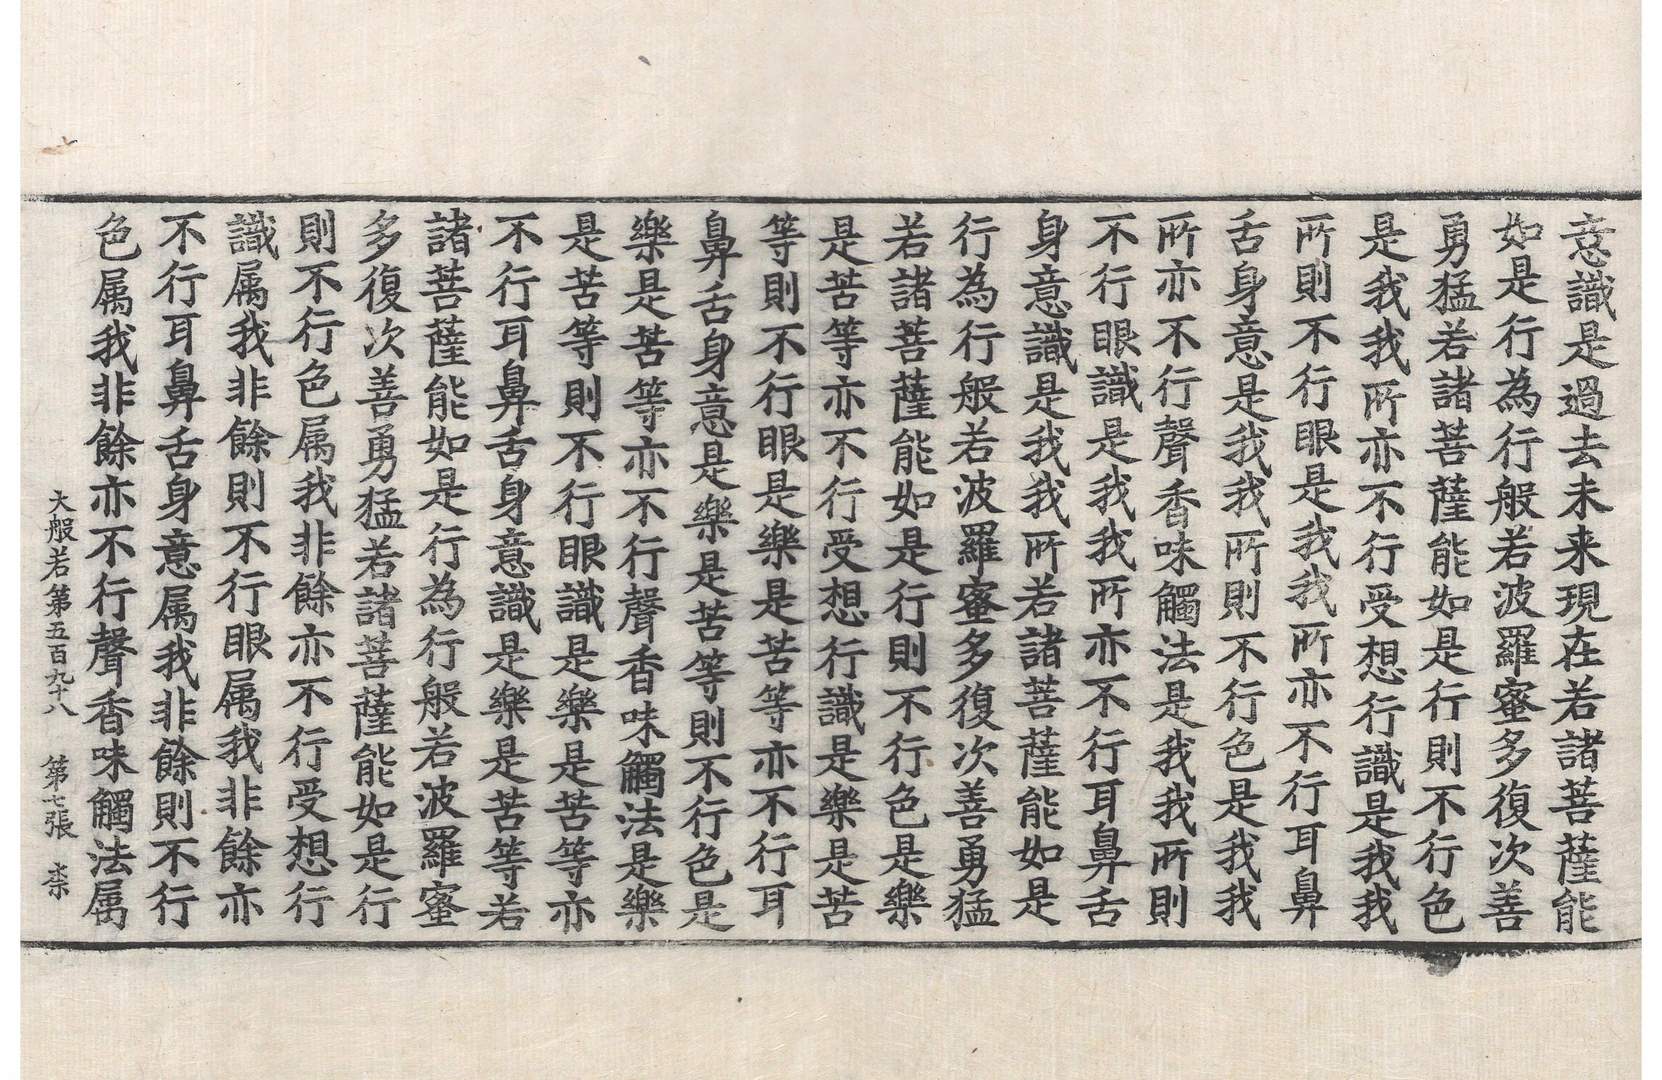 意識是過去未来現在若諸菩薩能
如是行為行般若波羅蜜多復次善
勇猛若諸菩薩能如是行則不行色
是我我所亦不行受想行識是我我
所則不行眼是我我所亦不行耳鼻
舌身意是我我所則不行色是我我
所亦不行聲香味觸法是我我所則
不行眼識是我我所亦不行耳鼻舌
身意識是我我所若諸菩薩能如是
行為行般若波羅蜜多復次善勇猛
若諸菩薩能如是行則不行色是樂
是苦等亦不行受想行識是樂是苦
等則不行眼是樂是苦等亦不行耳
鼻舌身意是樂是苦等則不行色是
樂是苦等亦不行聲香味觸法是樂
是苦等則不行眼識是樂是苦等亦
不行耳鼻舌身意識是樂是苦等若
諸菩薩能如是行為行般若波羅蜜
多復次善勇猛若諸菩薩能如是行
則不行色属我非餘亦不行受想行
識属我非餘則不行眼属我非餘亦
不行耳鼻舌身意属我非餘則不行
色属我非餘亦不行聲香味觸法属
大般若第五百九十八 第七張 柰